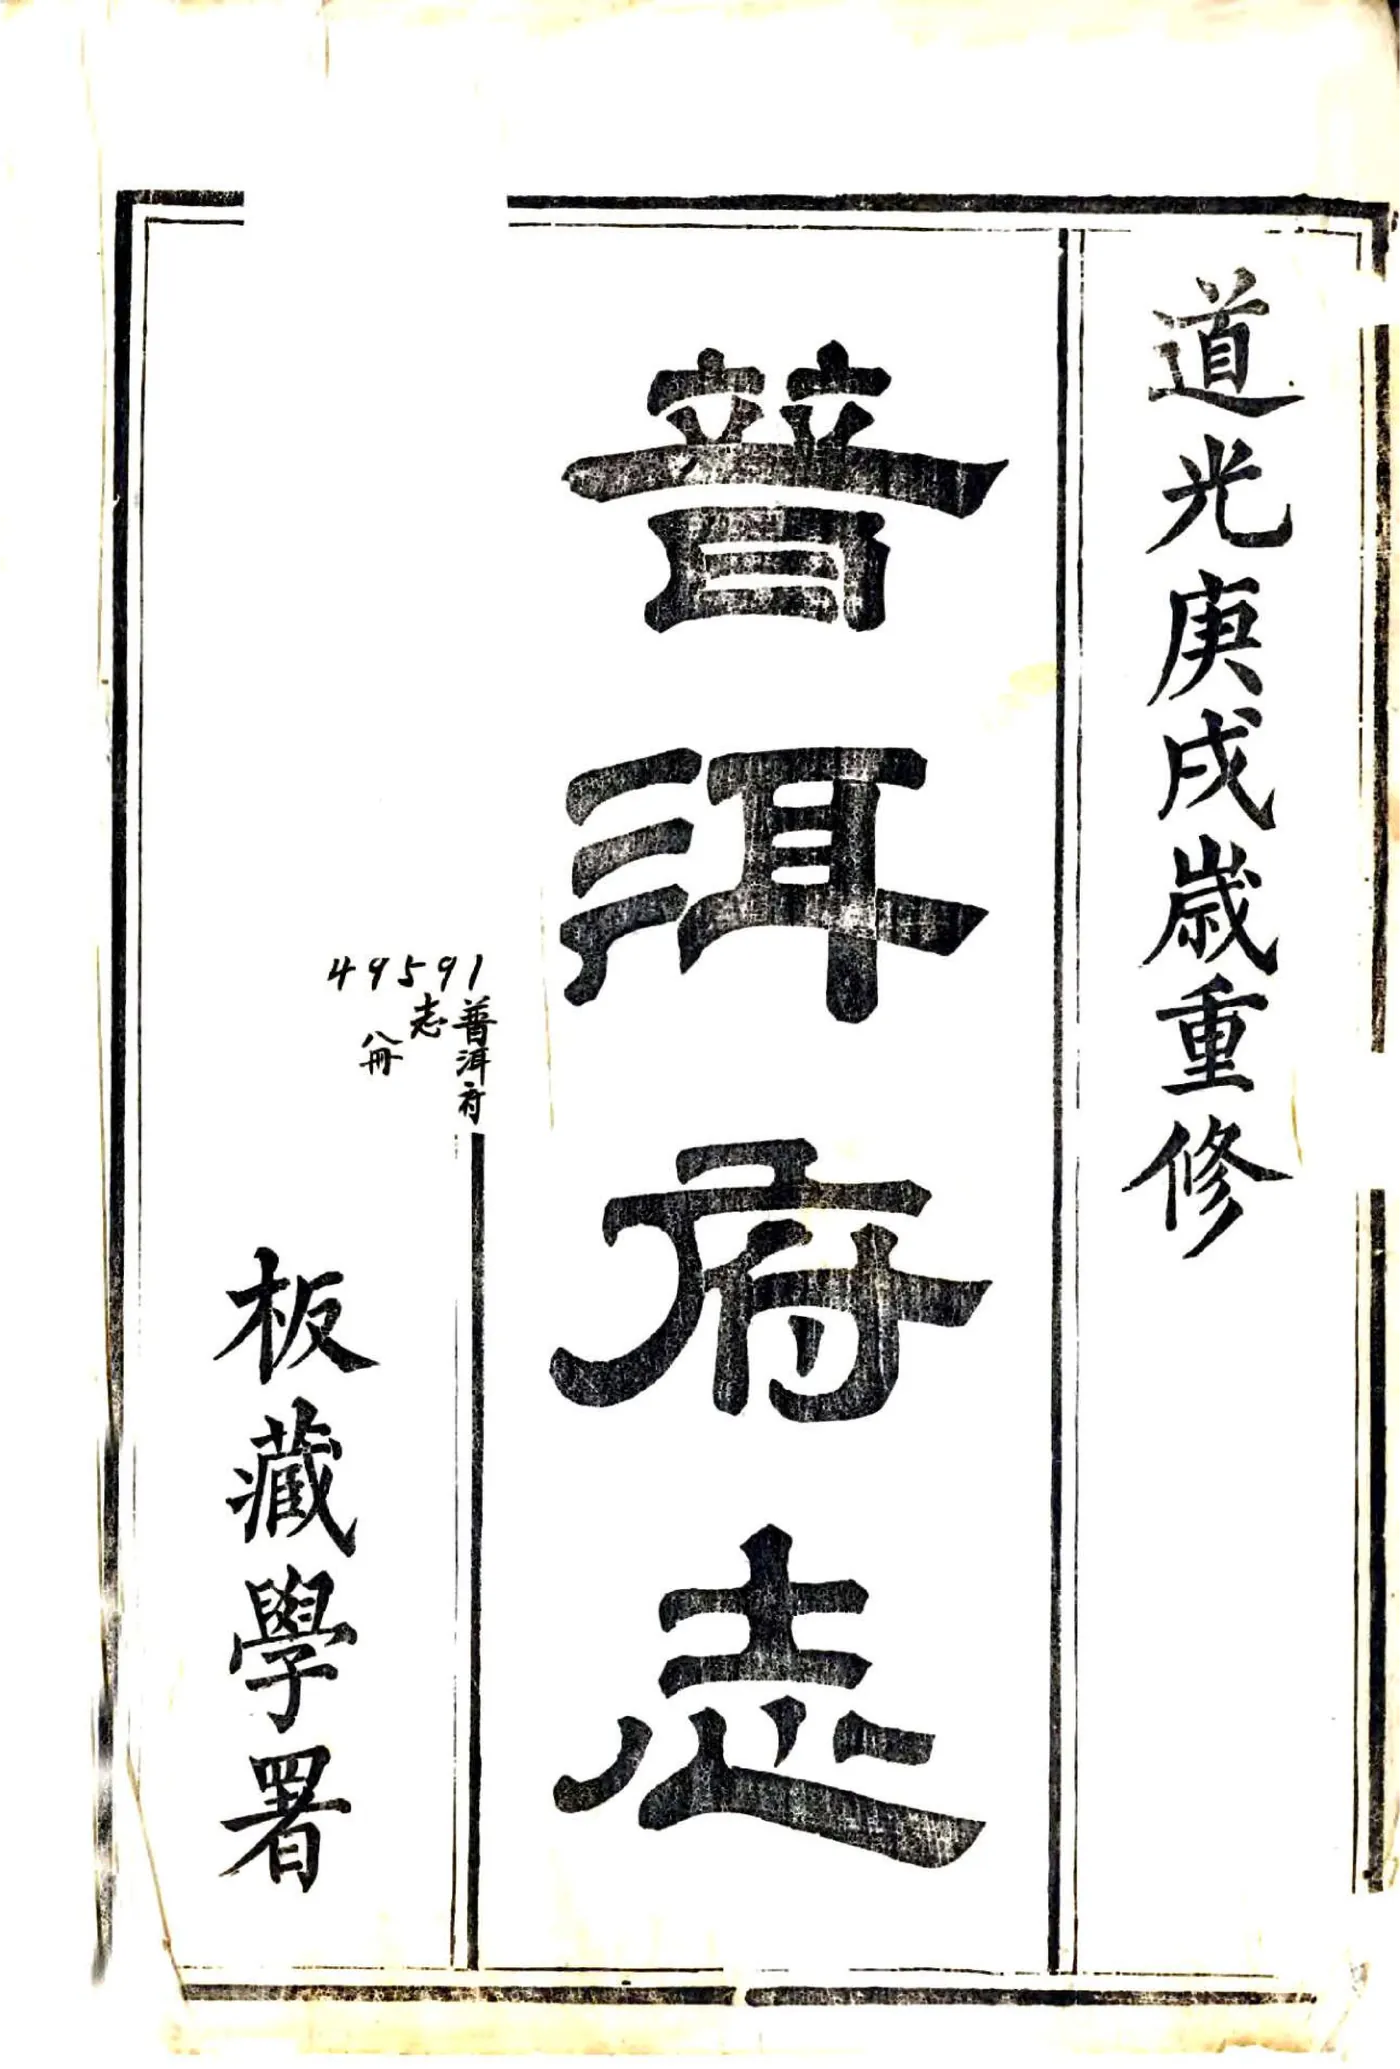 道光庚戌歳重修
普洱府志
49591
普洱府
志
八冊
板藏學署